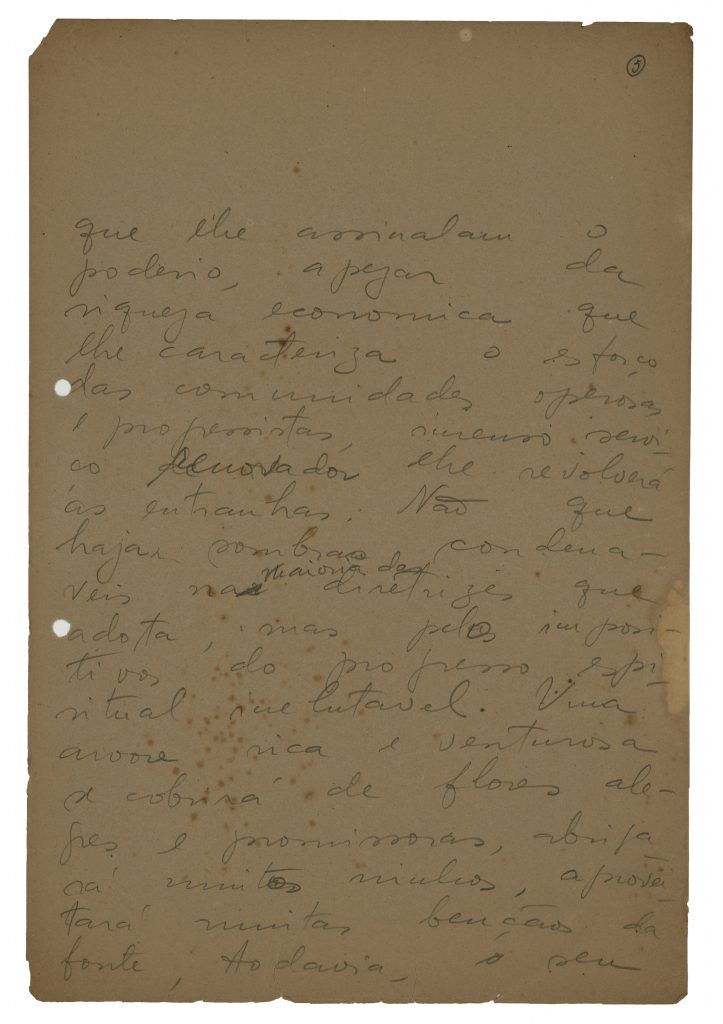 5
que lhe assinalam o
poderio, apezar da
riqueza economica que
lhe caracteriza o esforço
das comunidades operosas
e progressistas, imenso servi-
ço renovador lhe revolverá
ás entranhas. Não que
hajam sombras condena-
maioria das
veis na diretrizes que
adota, mas pelos imposi-
tivos do progresso espi-
ritual inelutavel. Uma
arvore rica e venturosa
se cobrirá de flores ale-
gres e promissoras, abriga-
rá muitos ninhos, aprovei-
tará muitas bençãos da
fonte, todavia, o seu